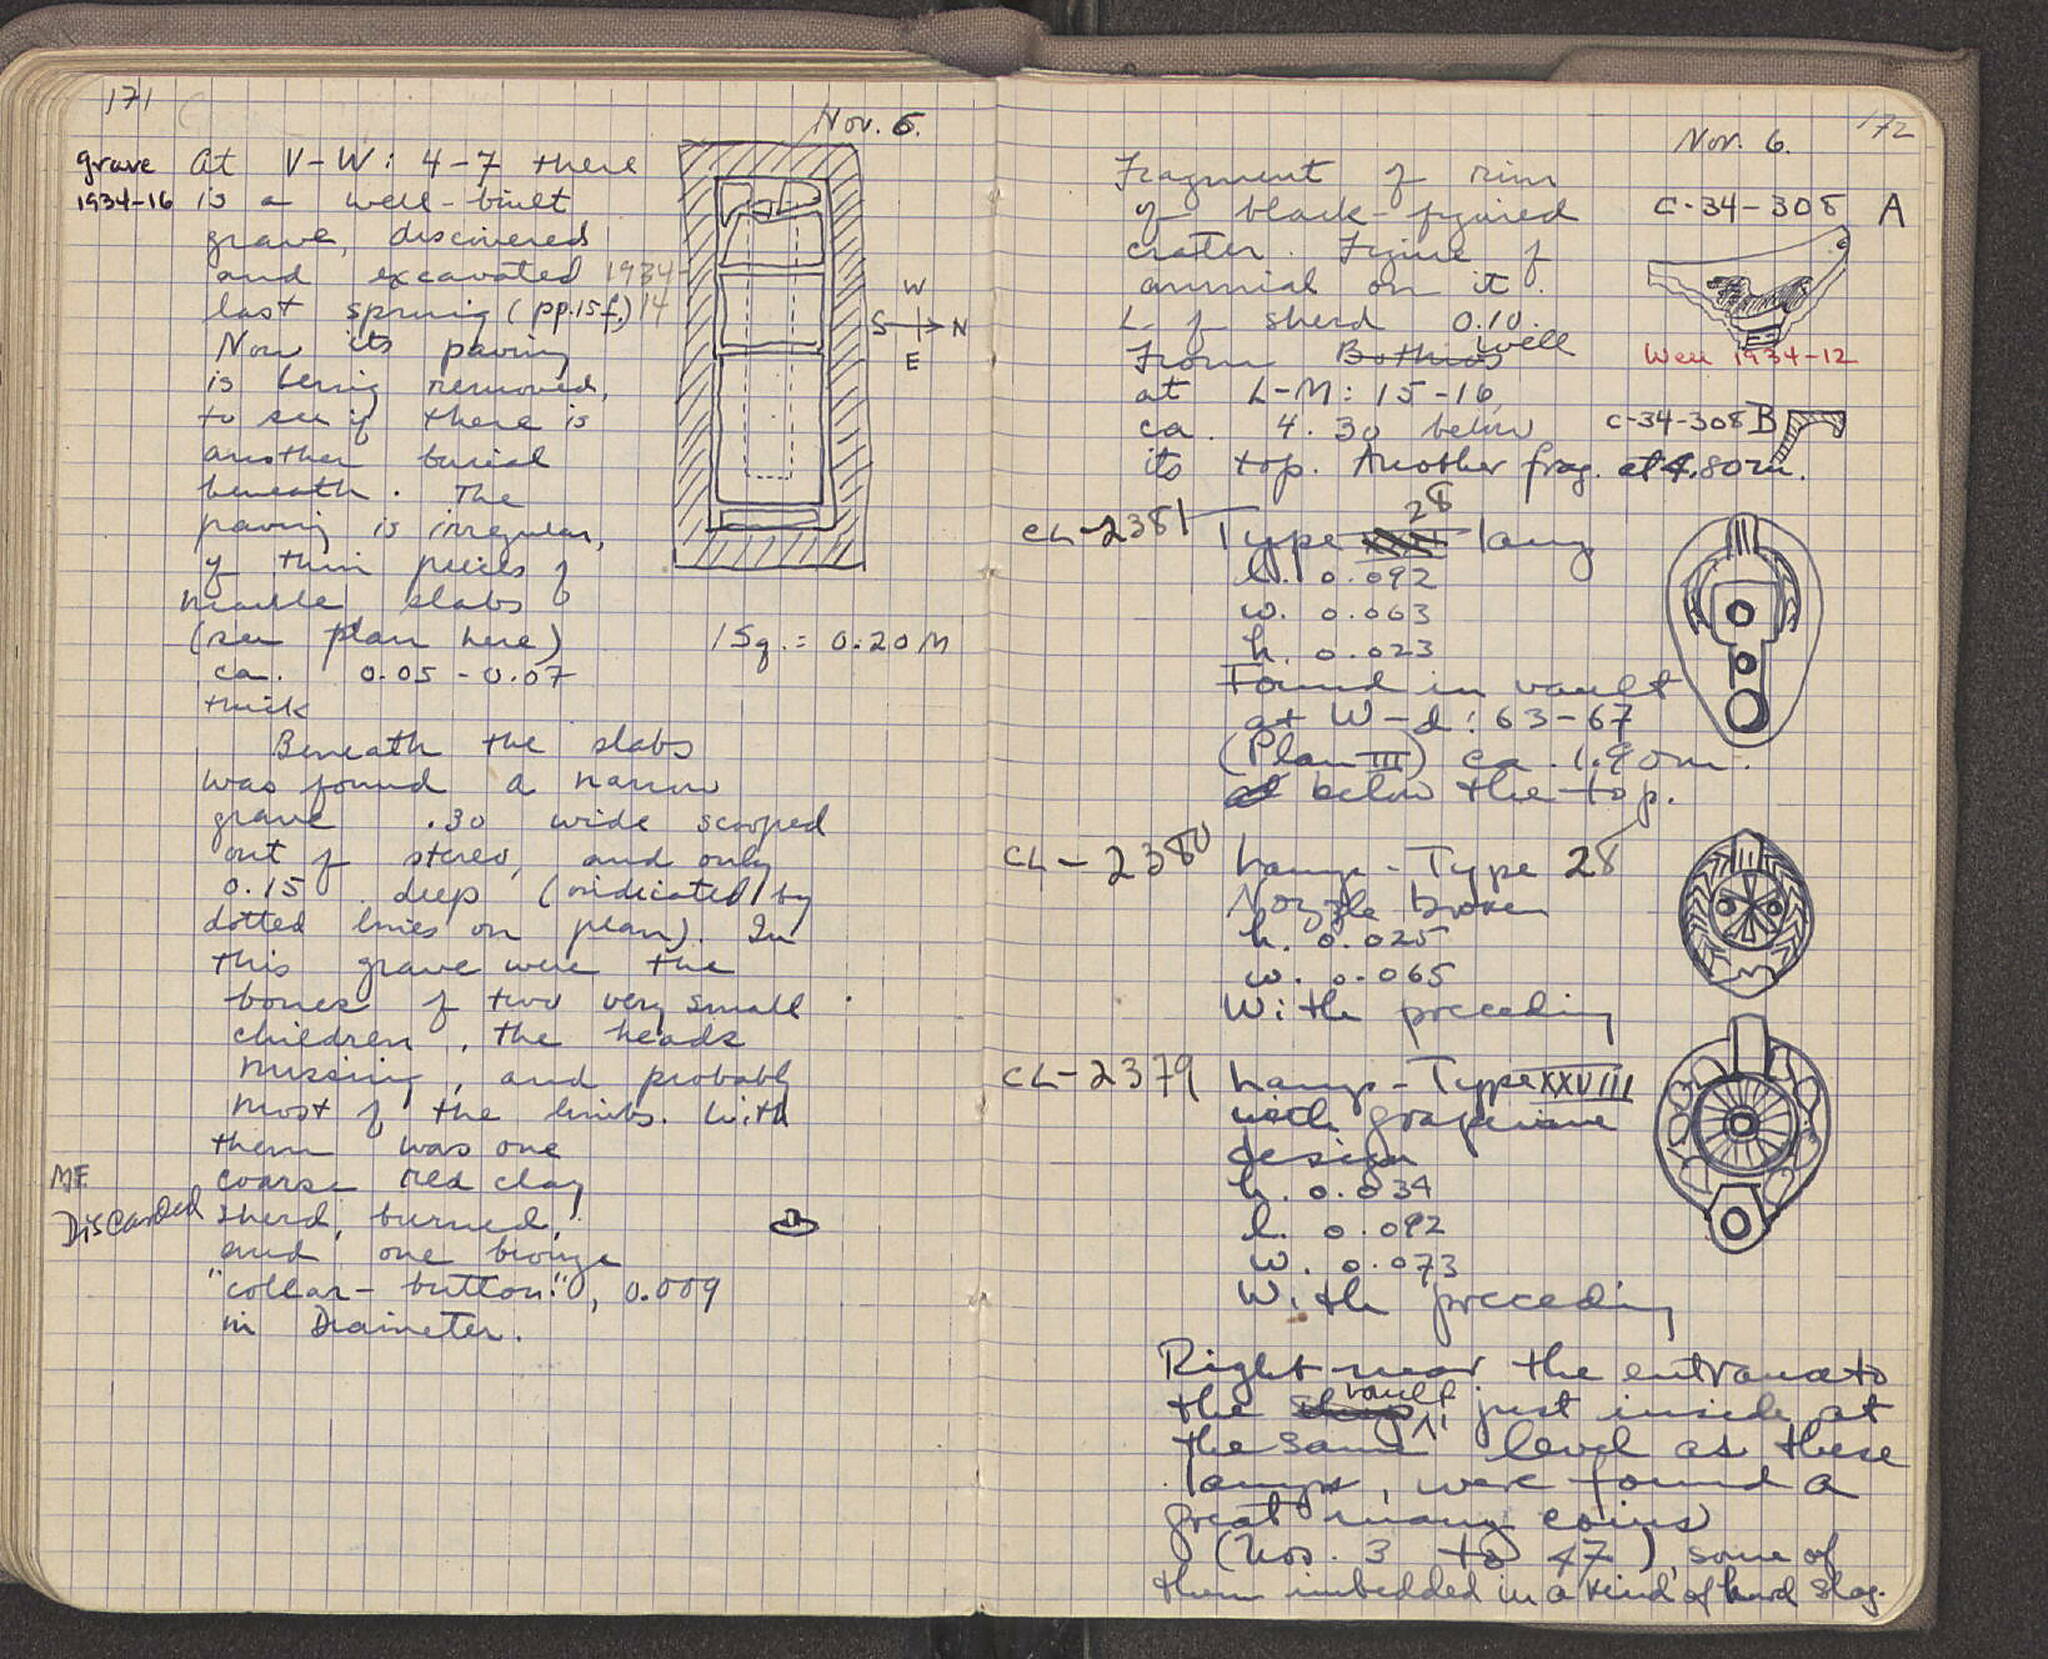 171
Nov. 6.
grave
1934-16
At V-W: 4-7 there
is a well-built
grave, discovered
and excavated 1934-
last spring (pp. 15 f.) 14
Now its paving
is being removed,
to see if there is
another burial
beneath. The
paving is irregular,
of thin pieces of
marble slabs
(see plan here)
ca. 0.05 - 0.07
thick
W
S N
E
1 Sq. = 0.20 M
Beneath the slabs
was found a narrow
grave .30 wide scooped
out of stereo, and only
0.15 deep (indicated by
dotted lines on plan). In
this grave were the
bones of two very small
children, the heads
missing, and probably
most of the limbs. With
them was one
coarse red clay
sherd, burned,
and one bronze
"collar-button", 0.009
in Diameter.
ME
Discarded
172
Nov. 6.
Fragment of rim
of black-figured
crater. Figure of
animal on it.
L. of sherd 0.10.
From Bothros well
at L-M: 15-16,
ca. 4.30 below
its top. Another frag. at 4.80m.
C-34-308 A
Well 1934-12
C-34-308 B
CL-2381 Type 28 lamp
l. 0.092
w. 0.063
h. 0.023
Found in vault
at W-d: 63-67
(Plan III) ca. 1.90m.
below the top.
CL-2380 Lamp - Type 28
Nozzle broken
h. 0.025
w. 0.065
With preceding
CL-2379 Lamp - Type XXVIII
with grapevine
design
h. 0.034
l. 0.092
w. 0.073
With preceding
Right near the entrance to
the vault just inside, at
the same level as these
lamps, were found a
great many coins
(Nos. 3 to 47), some of
them imbedded in a kind of hard slag.